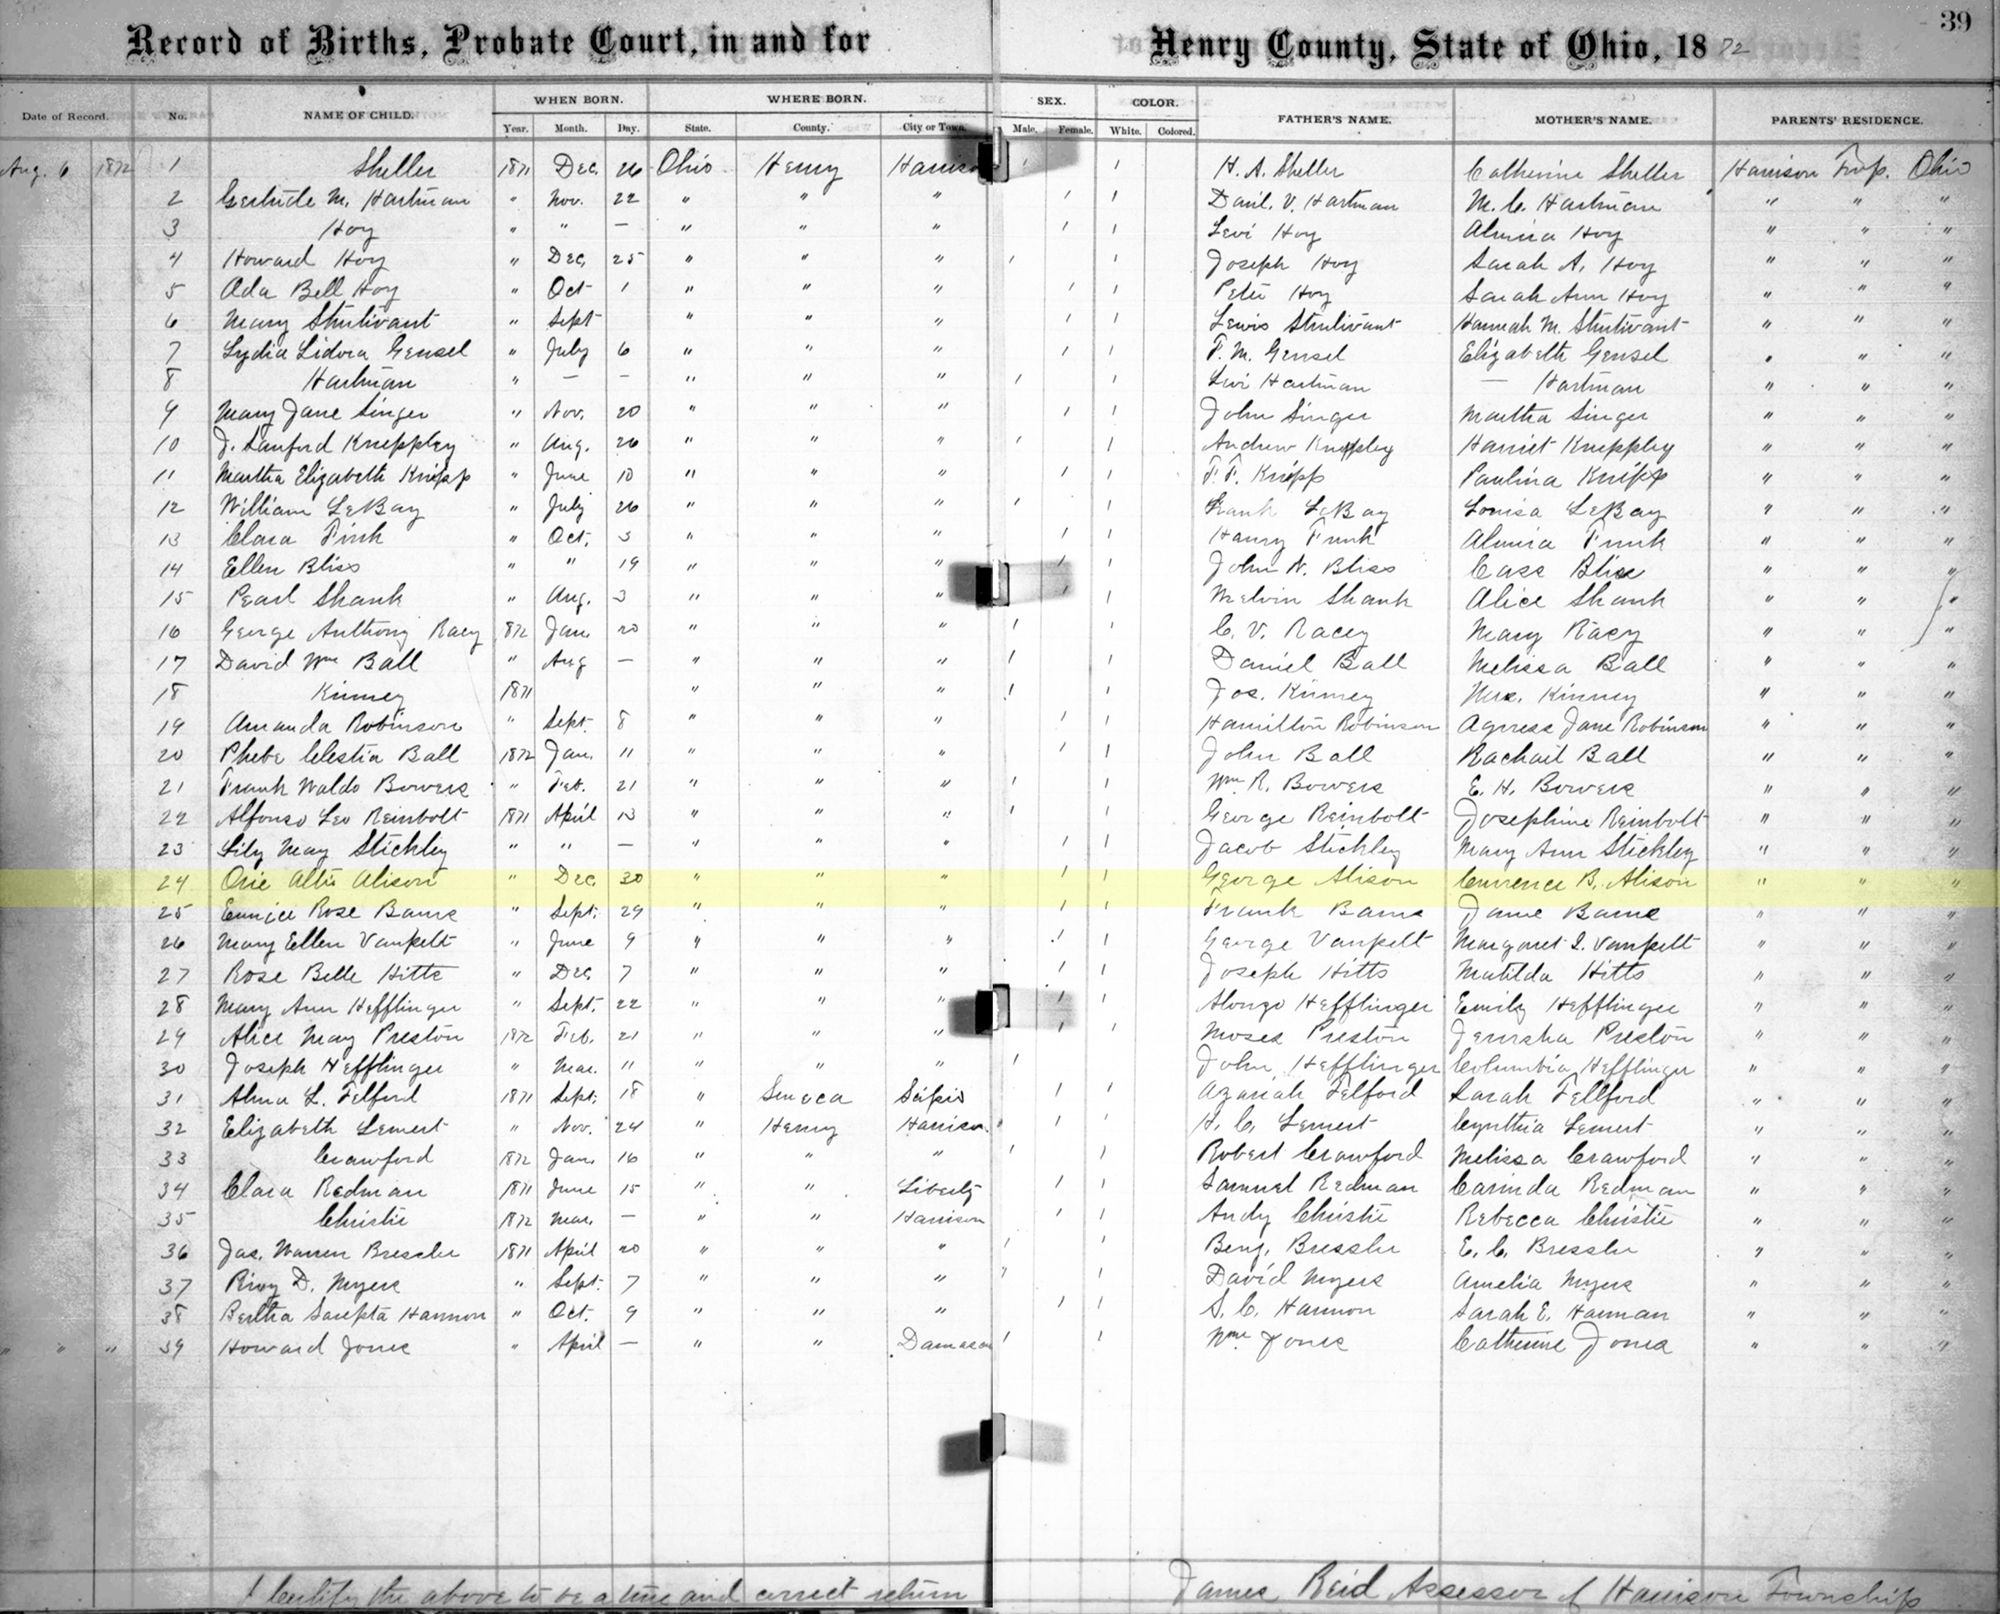 39
Record of Births, Probate Court, in and for Henry County, State of Ohio, 1872
Date of Record. No. NAME OF CHILD. WHEN BORN. WHERE BORN. SEX. COLOR. FATHER'S NAME. MOTHER'S NAME. PARENTS' RESIDENCE.
Year. Month. Day. State. County. City or Town. Male. Female. White. Colored.
Aug. 6 1872 1 Sheller 1871 Dec. 26 Ohio Henry Harrison ' ' H. A. Sheller Catherine Sheller Harrison Twp. Ohio
2 Gertrude M. Hartman " Nov. 22 " " " ' ' Danl. V. Hartman M. C. Hartman " " "
3 Hoy " " — " " " ' ' Levi Hoy Almira Hoy " " "
4 Howard Hoy " Dec. 25 " " " ' ' Joseph Hoy Sarah A. Hoy " " "
5 Ada Bell Hoy " Oct 1 " " " ' ' Peter Hoy Sarah Ann Hoy " " "
6 Mary Stutivant " Sept " " " ' ' Lewis Stutivant Hannah M. Stutivant " " "
7 Lydia Lidora Gensel " July 6 " " " ' ' T. M. Gensel Elizabeth Gensel " " "
8 Hartman " — — " " " ' ' Levi Hartman — Hartman " " "
9 Mary Jane Singer " Nov. 20 " " " ' ' John Singer Martha Singer " " "
10 J. Sanford Kneppley " Aug. 26 " " " ' ' Andrew Kneppley Harriet Kneppley " " "
11 Martha Elizabeth Knipp " June 10 " " " ' ' F. F. Knipp Paulina Knipp " " "
12 William LeBay " July 26 " " " ' ' Frank LeBay Louisa LeBay " " "
13 Clara Fink " Oct. 3 " " " ' ' Henry Funk Almira Funk " " "
14 Ellen Bliss " " 19 " " " ' ' John N. Bliss Cass Bliss " " "
15 Pearl Shank " Aug. 3 " " ' ' Melvin Shank Alice Shank " " "
16 George Anthony Racy 1872 Jan. 20 " " " ' ' C. V. Racey Mary Racy " " "
17 David Wm Ball " Aug — " " " ' ' Daniel Ball Melissa Ball " " "
18 Kinney 1871 " " " ' ' Jos. Kinney Mrs. Kinney " " "
19 Amanda Robinson " Sept. 8 " " " ' ' Hamilton Robinson Agness Jane Robinson " " "
20 Phebe Clestia Ball 1872 Jan. 11 " " " ' ' John Ball Rachail Ball " " "
21 Frank Waldo Bowers " Feb. 21 " " " ' ' Wm R. Bowers E. H. Bowers " " "
22 Alfonso Leo Reinbolt 1871 April 13 " " " ' ' George Reinbolt Josephine Reinbolt " " "
23 Lily May Stickley " " — " " " ' ' Jacob Stickley Mary Ann Stickley " " "
24 Orie Alison " Dec. 30 " " " ' ' George Alison B. Alison " " "
25 Eunice Rose " Sept. 29 " " " ' ' Frank Jane " " "
26 Mary Ellen Vanpelt " June 9 " " " ' ' George Vanpelt Margaret I. Vanpelt " " "
27 Rose Belle Hitts " Dec. 7 " " " ' ' Joseph Hitts Matilda Hitts " " "
28 Mary Ann Hefflinger " Sept. 22 " " ' ' Alonzo Hefflinger Emily Hefflinger " " "
29 Alice May Preston 1872 Feb. 21 " " " ' ' Moses Preston Jerusha Preston " " "
30 Joseph Hefflinger " Mar. 11 " " " ' John Hefflinger Columbia Hefflinger " " "
31 Alma L. Telford 1871 Sept. 18 " Seneca Scipio ' ' Azariah Telford Sarah Tellford " " "
32 Elizabeth Lemert " Nov. 24 " Henry Harrison. ' ' H. C. Lemert Cynthia Lemert " " "
33 Crawford 1872 Jan. 16 " " " ' ' Robert Crawford Melissa Crawford " " "
34 Clara Redman 1871 June 15 " " Liberty ' ' Samuel Redman Carinda Redman " " "
35 Christie 1872 Mar. — " " Harrison ' ' Andy Christie Rebecca Christie " " "
36 Jas. Warren Bressler 1871 April 20 " " " ' ' Benj. Bressler E. C. Bressler " " "
37 D. Myers " Sept. 7 " " " ' ' David Myers Amelia Myers " " "
38 Bertha Sarepta Harmon " Oct. 9 " " " ' ' S. C. Harmon Sarah E. Harman " " "
" " " 39 Howard Jones " April — " " Damascus ' ' Wm. Jones Catherine Jones " " "
I Certify the above to be a true and correct return James Reid Assessor of Harrison Township